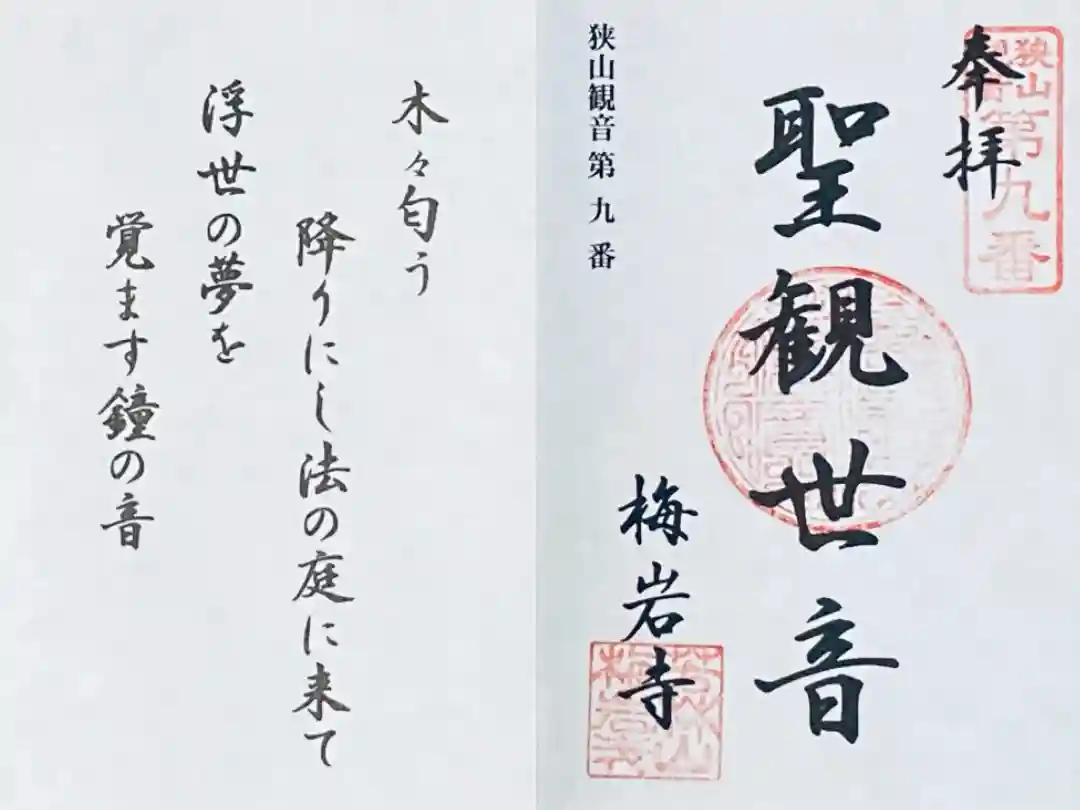 奉拝
狭山
観音
第九番
聖観世音
梅岩寺
狭山観音第九番
木々匂う
降りにし法の庭に来て
浮世の夢を
覚ます鐘の音